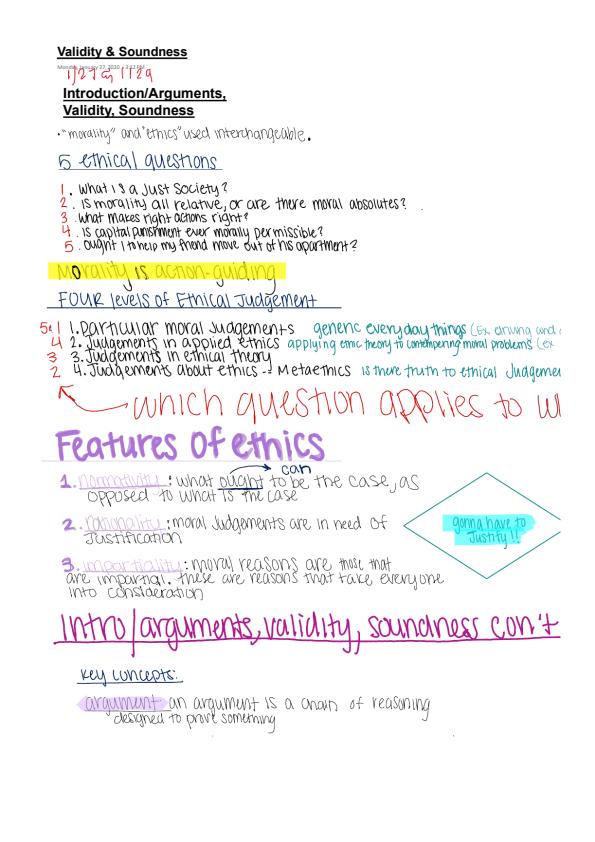 Validity & Soundness
Monday, January 27, 2020 2:12 PM
1/27 & 1/29
Introduction/Arguments,
Validity, Soundness
• "morality" and "ethics" used interchangeable.
5 ethical questions
1. What is a Just Society?
2. is morality all relative, or are there moral absolutes?
3. what makes right actions right?
4. is capital punishment ever morally permissible?
5. ought I to help my friend move out of his apartment?
Morality is action-guiding
FOUR levels of Ethical Judgement
5&1 1. Particular moral Judgements generic everyday things (Ex. driving and
4 2. Judgements in applied ethics applying ethic theory to contempering moral problems (ex
3 3. Judgements in ethical theory
2 4. Judgements about ethics -- Metaethics is there truth to ethical Judgeme
which question applies to w
Features of ethics
can
1. normativity: what ought to be the case, as
opposed to what is the case
2. rationality: moral Judgements are in need of
Justification
gonna have to
Justify!!
3. impartiality: moral reasons are those that
are impartial. these are reasons that take everyone
into consideration
Intro/arguments, validity, soundness con't
key concepts:
argument an argument is a chain of reasoning
designed to prove something